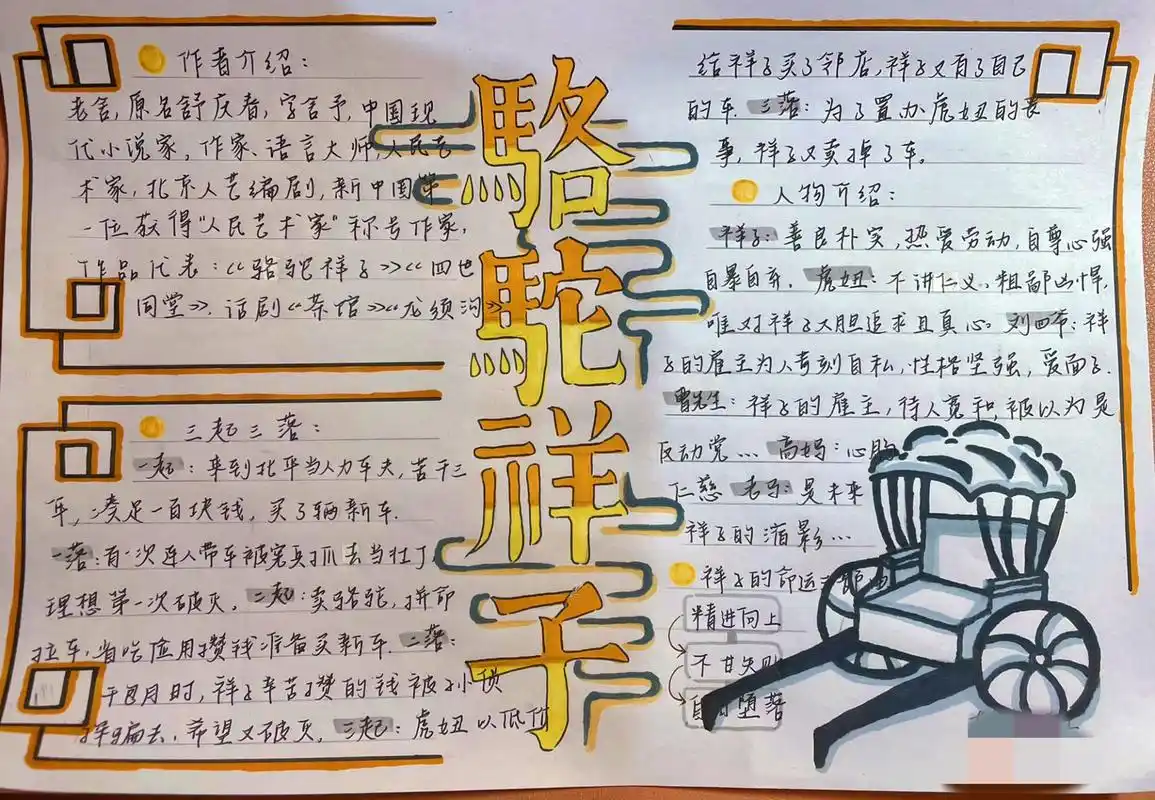 作者介绍:
老舍,原名舒庆春,字舍予,中国现
代小说家,作家、语言大师,人民艺
术家,北京人艺编剧,新中国第
一位获得"人民艺术家"称号作家,
作品代表:《骆驼祥子》《四世
同堂》.话剧《茶馆》《龙须沟》
三起三落:
一起:来到北平当人力车夫,苦干三
年,凑足一百块钱,买了辆新车.
一落:有一次连人带车被宪兵抓去当壮丁
理想第一次破灭.二起:卖骆驼,拼命
拉车,省吃俭用攒钱准备买新车.二落:
干包月时,祥子辛苦攒的钱被
去,希望又破灭.三起:虎妞以低价
駱駝祥子
给祥子买了邻店,祥子又有了自己
的车.三落:为了置办虎妞的丧
事,祥子又卖掉了车.
人物介绍:
祥子:善良朴实,热爱劳动,自尊心强
自暴自弃.虎妞:不讲仁义、粗鄙凶悍,
唯对祥子大胆追求且真心。刘四爷:祥
子的雇主为人苛刻自私,性格坚强,爱面子.
曹先生:祥子的雇主,待人宽和,被以为是
反动党…高妈:心胸
仁慈 老马:是未来
祥子的缩影…
祥子的命运三部曲
精进向上
不甘失败
自甘堕落